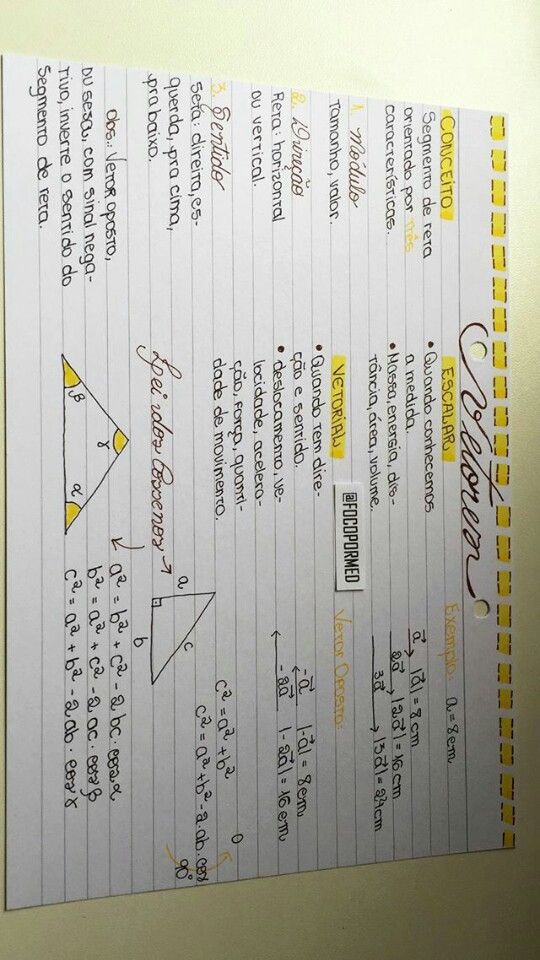 Vetores
CONCEITO
Segmento de reta
orientado por três
características.
1. Módulo
Tamanho, valor.
2. Direção
Reta: horizontal
ou vertical.
3. Sentido
Seta: direita, es-
querda, pra cima,
pra baixo.
obs.: Vetor oposto,
ou seja, com sinal nega-
tivo, inverte o sentido do
segmento de reta.
ESCALAR
• Quando conhecemos
a medida.
• Massa, energia, dis-
tância, área, volume.
VETORIAL
• Quando tem dire-
ção e sentido.
• deslocamento, ve-
locidade, acelera-
ção, força, quanti-
dade de movimento.
@FOCOPORMED
Exemplo: a = 8cm
a⃗ |a⃗| = 8 cm
2a⃗ |2a⃗| = 16 cm
3a⃗ |3a⃗| = 24 cm
Vetor Oposto:
-a⃗ |-a⃗| = 8cm
-2a⃗ |-2a⃗| = 16cm
Lei dos Cossenos →
a
b
c
c² = a² + b² 0
c² = a² + b² - 2ab . cos
90°
β
γ
α
a² = b² + c² - 2bc . cos α
b² = a² + c² - 2ac . cos β
c² = a² + b² - 2ab . cos γ